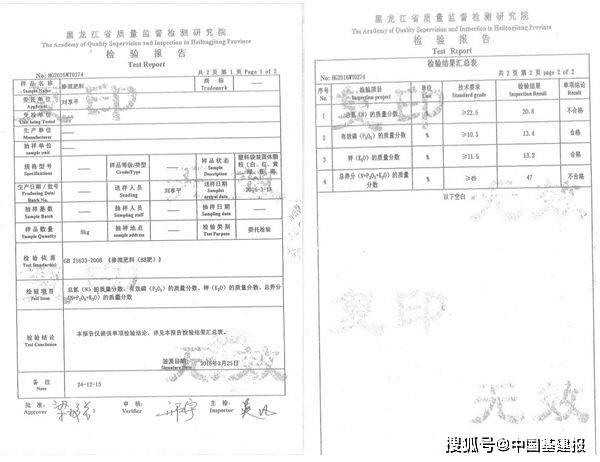 黑龙江省质量监督检测研究院
The Academy of Quality Supervision and Inspection in Heilongjiang Province
检 验 报 告
Test Report
No: HG2016WT0274
共 2 页 第 1 页 Page 1 of 2
样 品 名 称 Sample Name 掺混肥料 商 标 Trademark ——
委 托 单 位 Applicant 刘享平
受 检 单 位 Unit being Tested ——
生 产 单 位 Manufacturer ——
抽 样 单 位 sample unit ——
规 格 型 号 Specifications —— 样品等级/类型 Grade/Type —— 样 品 状 态 Sample Description 塑料袋装固体颗粒
生产日期/批号 Producing Date/ Batch No. —— 送 样 人 员 Sending 刘享平 送样日期 Samples arrival date
抽 样 基 数 Sample Batch —— 抽 样 人 员 Sampling staff —— 抽 样 日 期 Sampling date ——
样 品 数 量 Sample Quantity 8kg 抽 样 地 点 sample address —— 检 验 类 别 Test Purpose 委托检验
检 验 依 据 Test Standard(s) GB 21633-2008 《掺混肥料（BB肥）》
检 验 项 目 Test Item 总氮（N）的质量分数、有效磷（P₂O₅）的质量分数、钾（K₂O）的质量分数、总养分
（N+P₂O₅+K₂O）的质量分数
检 验 结 论 Test Conclusion 本报告仅提供单项检验结论，详见本报告检验结果汇总表。
签发日期： 2016年3月25日
Signature Date
备 注 Note 24-12-13
批 准： Approver
审 核： Verifier
主 检： Inspector
复印
无效
黑龙江省质量监督检测研究院
The Academy of Quality Supervision and Inspection in Heilongjiang Province
检 验 报 告
Test Report
No: HG2016WT0274
共 2 页 第 2 页 Page 2 of 2
检验结果汇总表
序号 No. 检验项目 Inspection project 单位 Unit 技术要求 Standard grade 检验结果 Inspection Result 单项结论 Result
1 总氮（N）的质量分数 % ≥22.5 20.8 不合格
2 有效磷（P₂O₅）的质量分数 % ≥10.5 13.4 合格
3 钾（K₂O）的质量分数 % ≥11.5 13.2 合格
4 总养分（N+P₂O₅+K₂O）的质量分数 % ≥49 47 不合格
以下空白
复印
无效
复印
无效
搜狐号@中国基建报